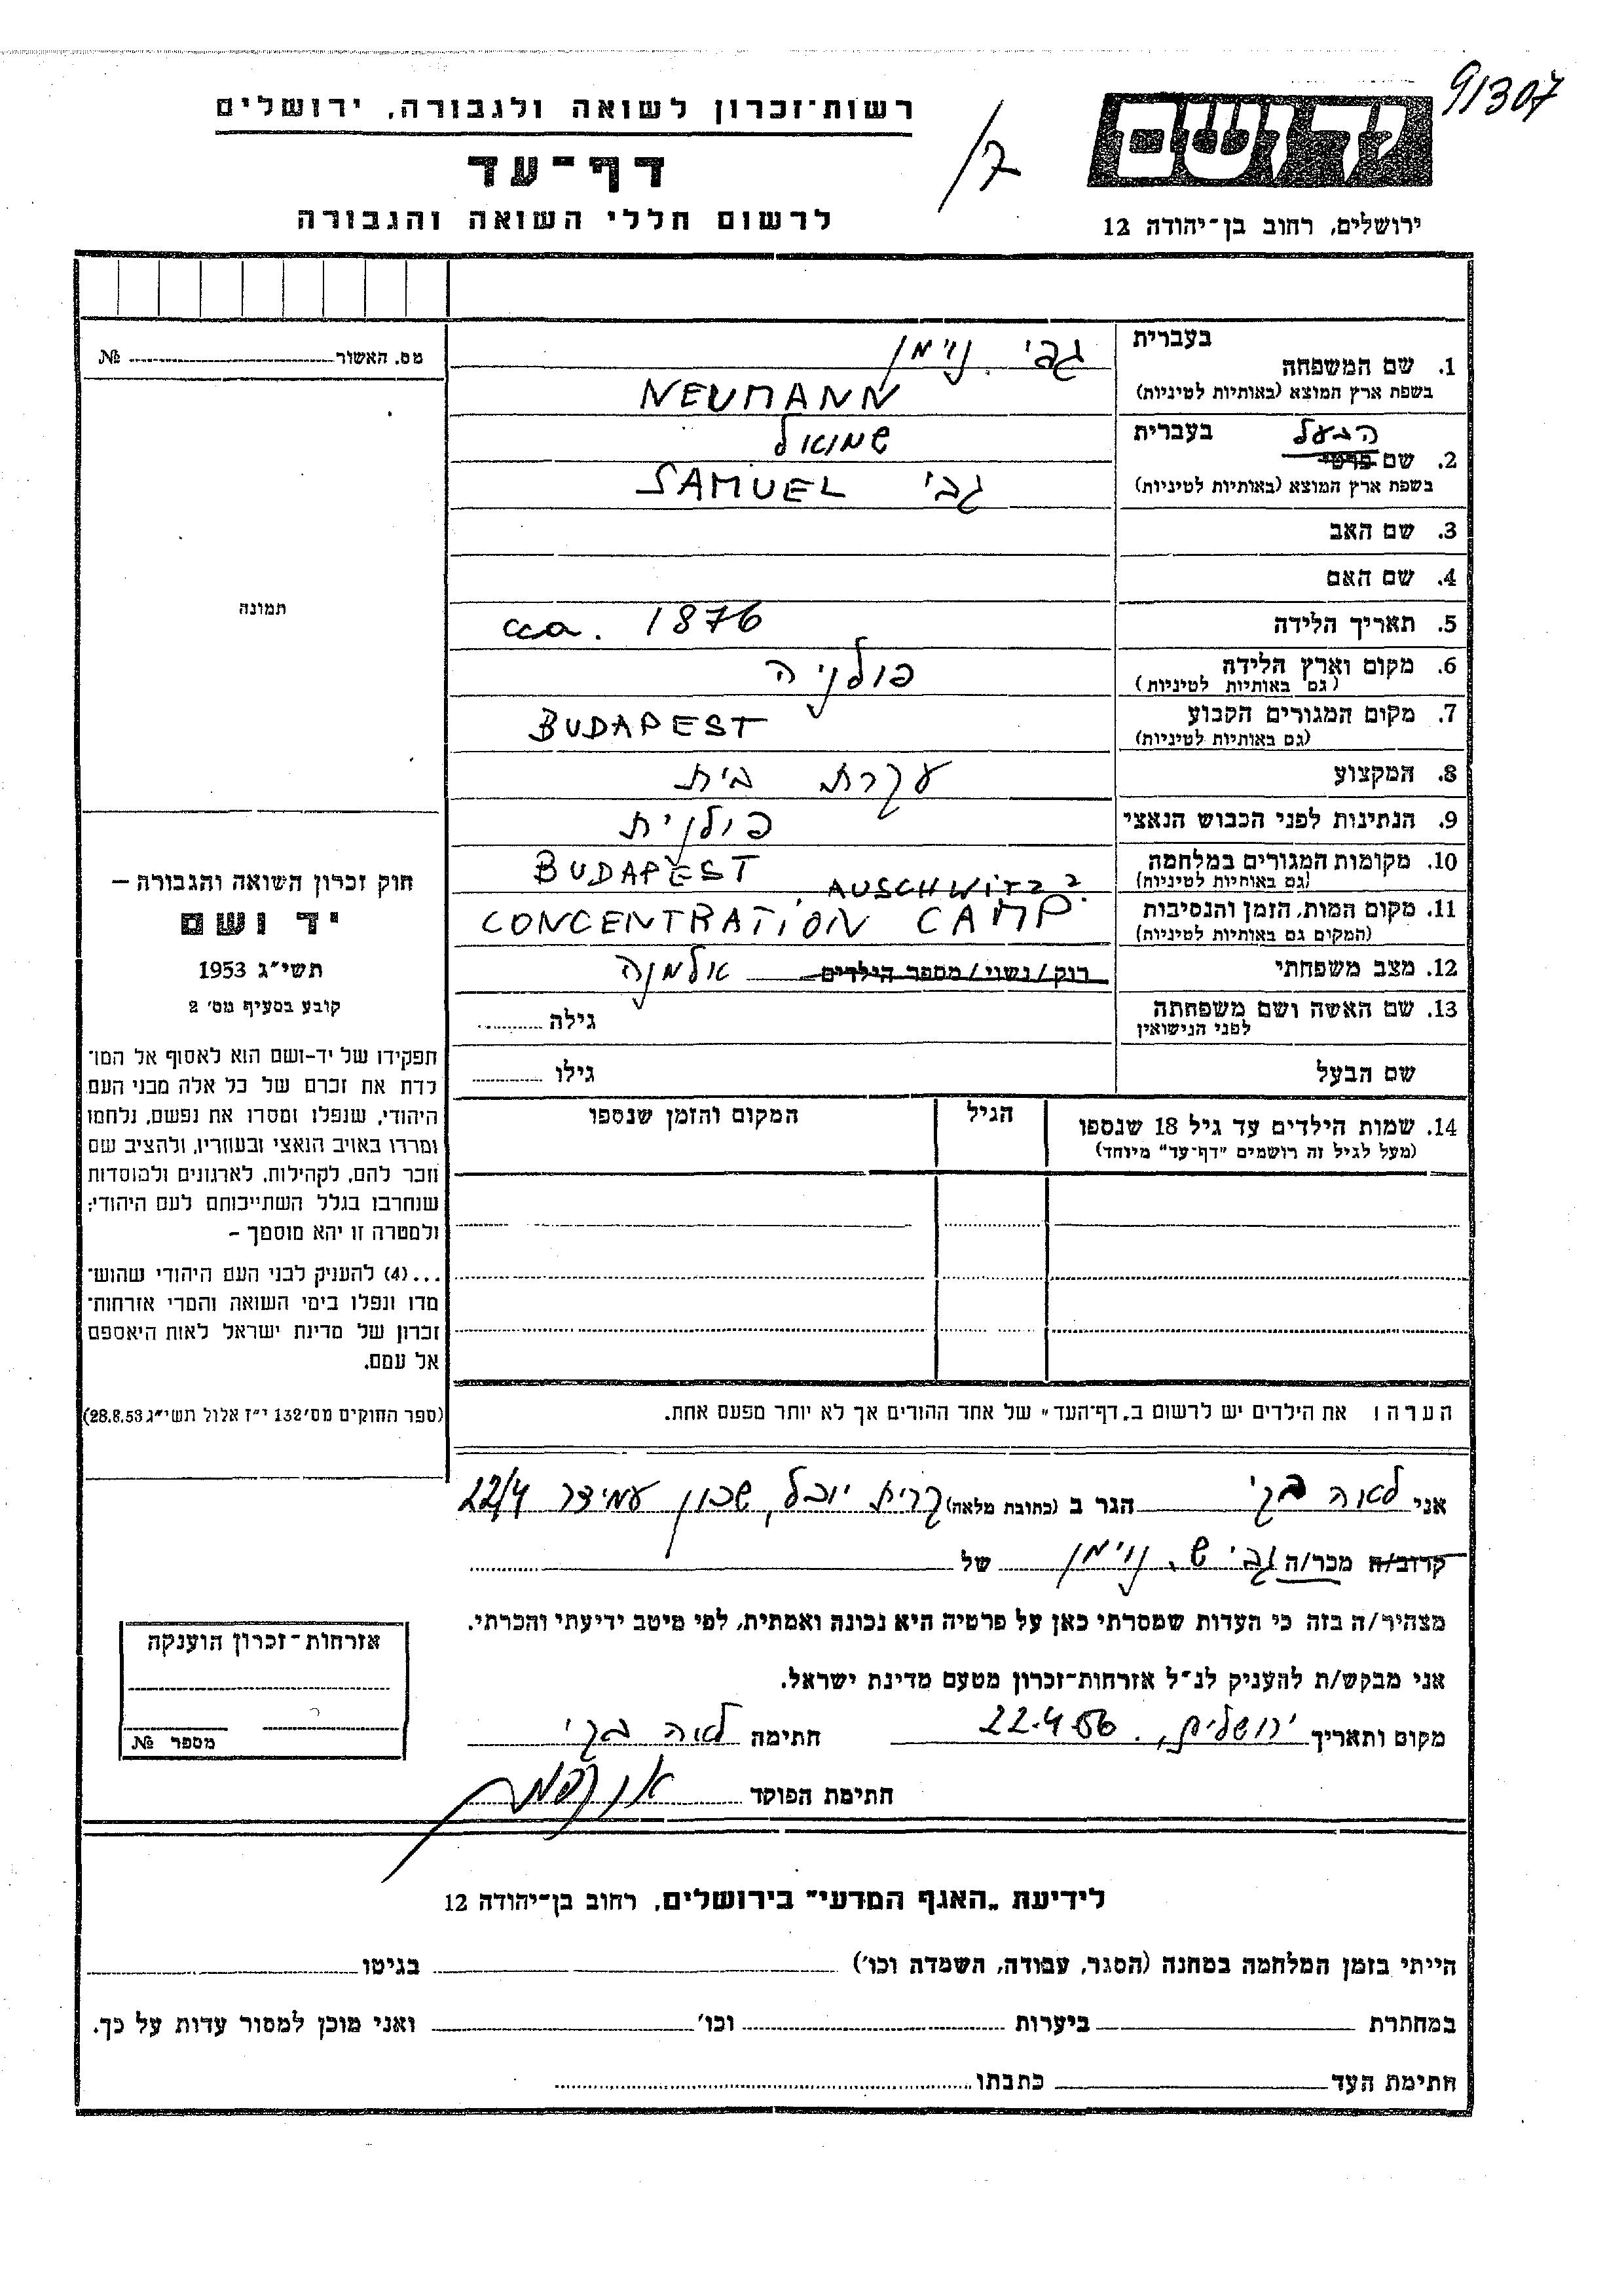 91307
רשות־זכרון לשואה ולגבורה, ירושלים
דף־עד
לרשום חללי השואה והגבורה
ידושם
ירושלים, רחוב בן־יהודה 12
מס. האשור № 
בעברית
1. שם המשפחה
בשפת ארץ המוצא (באותיות לטיניות)
גבי נוימן
NEUMANN
הבעל
בעברית
2. שם פרטי
בשפת ארץ המוצא (באותיות לטיניות)
שמואל
גבי SAMUEL
3. שם האב
4. שם האם
5. תאריך הלידה
cca. 1876
6. מקום וארץ הלידה
(גם באותיות לטיניות)
פולניה
7. מקום המגורים הקבוע
(גם באותיות לטיניות)
BUDAPEST
8. המקצוע
עקרת בית
9. הנתינות לפני הכבוש הנאצי
פולנית
10. מקומות המגורים במלחמה
(גם באותיות לטיניות)
BUDAPEST
11. מקום המות, הזמן והנסיבות
(המקום גם באותיות לטיניות)
AUSCHWITZ ?
CONCENTRATION CAMP.
12. מצב משפחתי
רוק/נשוי/מספר הילדים אלמנה
13. שם האשה ושם משפחתה
לפני הנישואין
גילה
שם הבעל
גילו
14. שמות הילדים עד גיל 18 שנספו
(מעל לגיל זה רושמים "דף־עד" מיוחד)
הגיל
המקום והזמן שנספו
הערה: את הילדים יש לרשום ב„דף־העד" של אחד ההורים אך לא יותר מפעם אחת.
תמונה
חוק זכרון השואה והגבורה –
יד ושם
תשי״ג 1953
קובע בסעיף מס׳ 2
תפקידו של יד-ושם הוא לאסוף אל המו־
לדת את זכרם של כל אלה מבני העם
היהודי, שנפלו ומסרו את נפשם, נלחמו
ומרדו באויב הנאצי ובעוזריו, ולהציב שם
וזכר להם, לקהילות, לארגונים ולמוסדות
שנחרבו בגלל השתייכותם לעם היהודי;
ולמטרה זו יהא מוסמך –
...(4) להעניק לבני העם היהודי שהוש־
מדו ונפלו בימי השואה והמרי אזרחות־
זכרון של מדינת ישראל לאות היאספם
אל עמם.
(ספר החוקים מס׳ 132 י״ז אלול תשי״ג 28.8.53)
אני לאה הגר ב (כתובת מלאה) קרית יובל, שכון עמידר 22/4
קרוב/ה מכר/ה גבי ש. נוימן של
מצהיר/ה בזה כי העדות שמסרתי כאן על פרטיה היא נכונה ואמתית, לפי מיטב ידיעתי והכרתי.
אני מבקש/ת להעניק לנ״ל אזרחות־זכרון מטעם מדינת ישראל.
מקום ותאריך ירושלים, 22.4.56 חתימה לאה
חתימת הפוקד
אזרחות־זכרון הוענקה
מספר №
לידיעת „האגף המדעי" בירושלים, רחוב בן־יהודה 12
הייתי בזמן המלחמה במחנה (הסגר, עבודה, השמדה וכו׳) בגיטו
במחתרת ביערות וכו׳ ואני מוכן למסור עדות על כך.
חתימת העד כתבתו